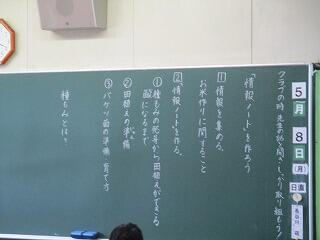 5月8日(月)
日直
クラブの時、先生の話を聞き、しっかり取り組もう!
「情報ノート」を作ろう
1 情報を集める。
お米作りに関すること
2 情報ノートを作る。
① 種もみの発芽から田植えができる
苗になるまで
② 田植えの準備
③ バケツ苗の準備、育て方
種もみとは?